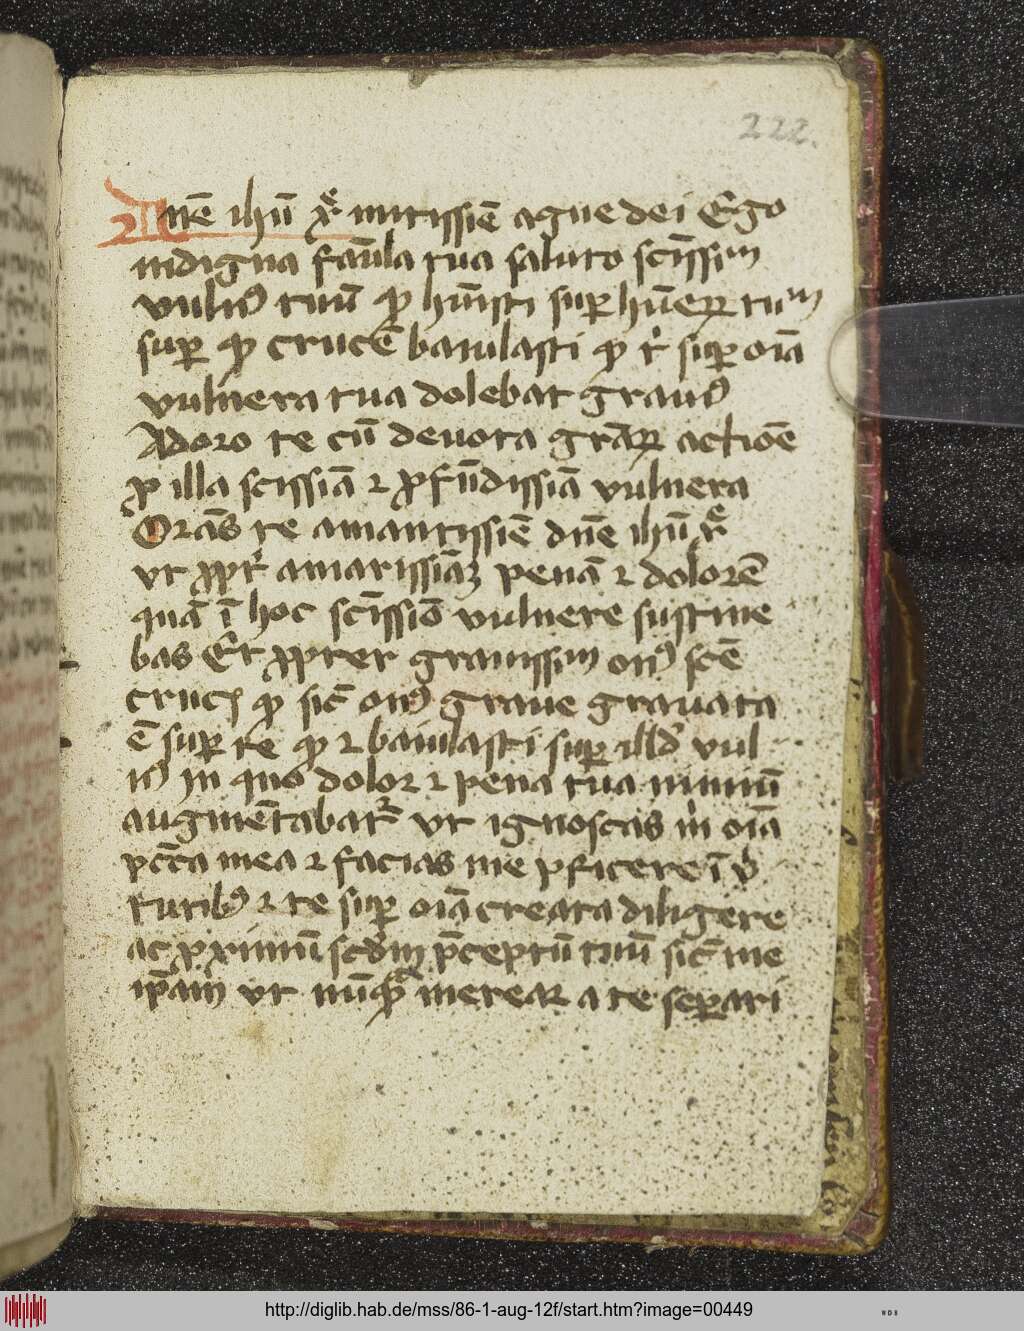 222.
Dn̄e ihū xp̄e mitissiē agne dei Ego
indigna fām̄la tua saluto sc̄issim
vuln9 tuū qd̄ hūisti sup hūerū tuū
sup qd̄ crucē baiulasti qd̄ t͛ sup oīa
vulnera tua dolebat graui9
Adoro te cū deuota gr̄aꝝ actiōe
ꝓ illa sc̄issiā ⁊ ꝓfūdissiā vulnera
Orās te amantissiē dn̄e ihū xp̄e
vt ꝓpt͛ amarissiāꝫ penā ⁊ dolorē
quā ī hoc sc̄issiō vulnere sustine
bas Et ꝓpter grauissim on9 sc̄e
cruc̄ qd̄ sic̄ on9 graue grauata
ē sup te qd̄ ⁊ baiulasti sup illd̄ vul
n9 in quo dolor ⁊ pena tua nimiū
augmētabat͛ vt ignoscas m̄ oīa
pc̄cā mea ⁊ facias me ꝓficere ī v͛
tutib9 ⁊ te sup oīa creata diligere
ac ꝓximū scd̄m p̄ceptū tuū sic̄ me
ip̄am vt nūqᷓ merear a te separi
http://diglib.hab.de/mss/86-1-aug-12f/start.htm?image=00449
WDB